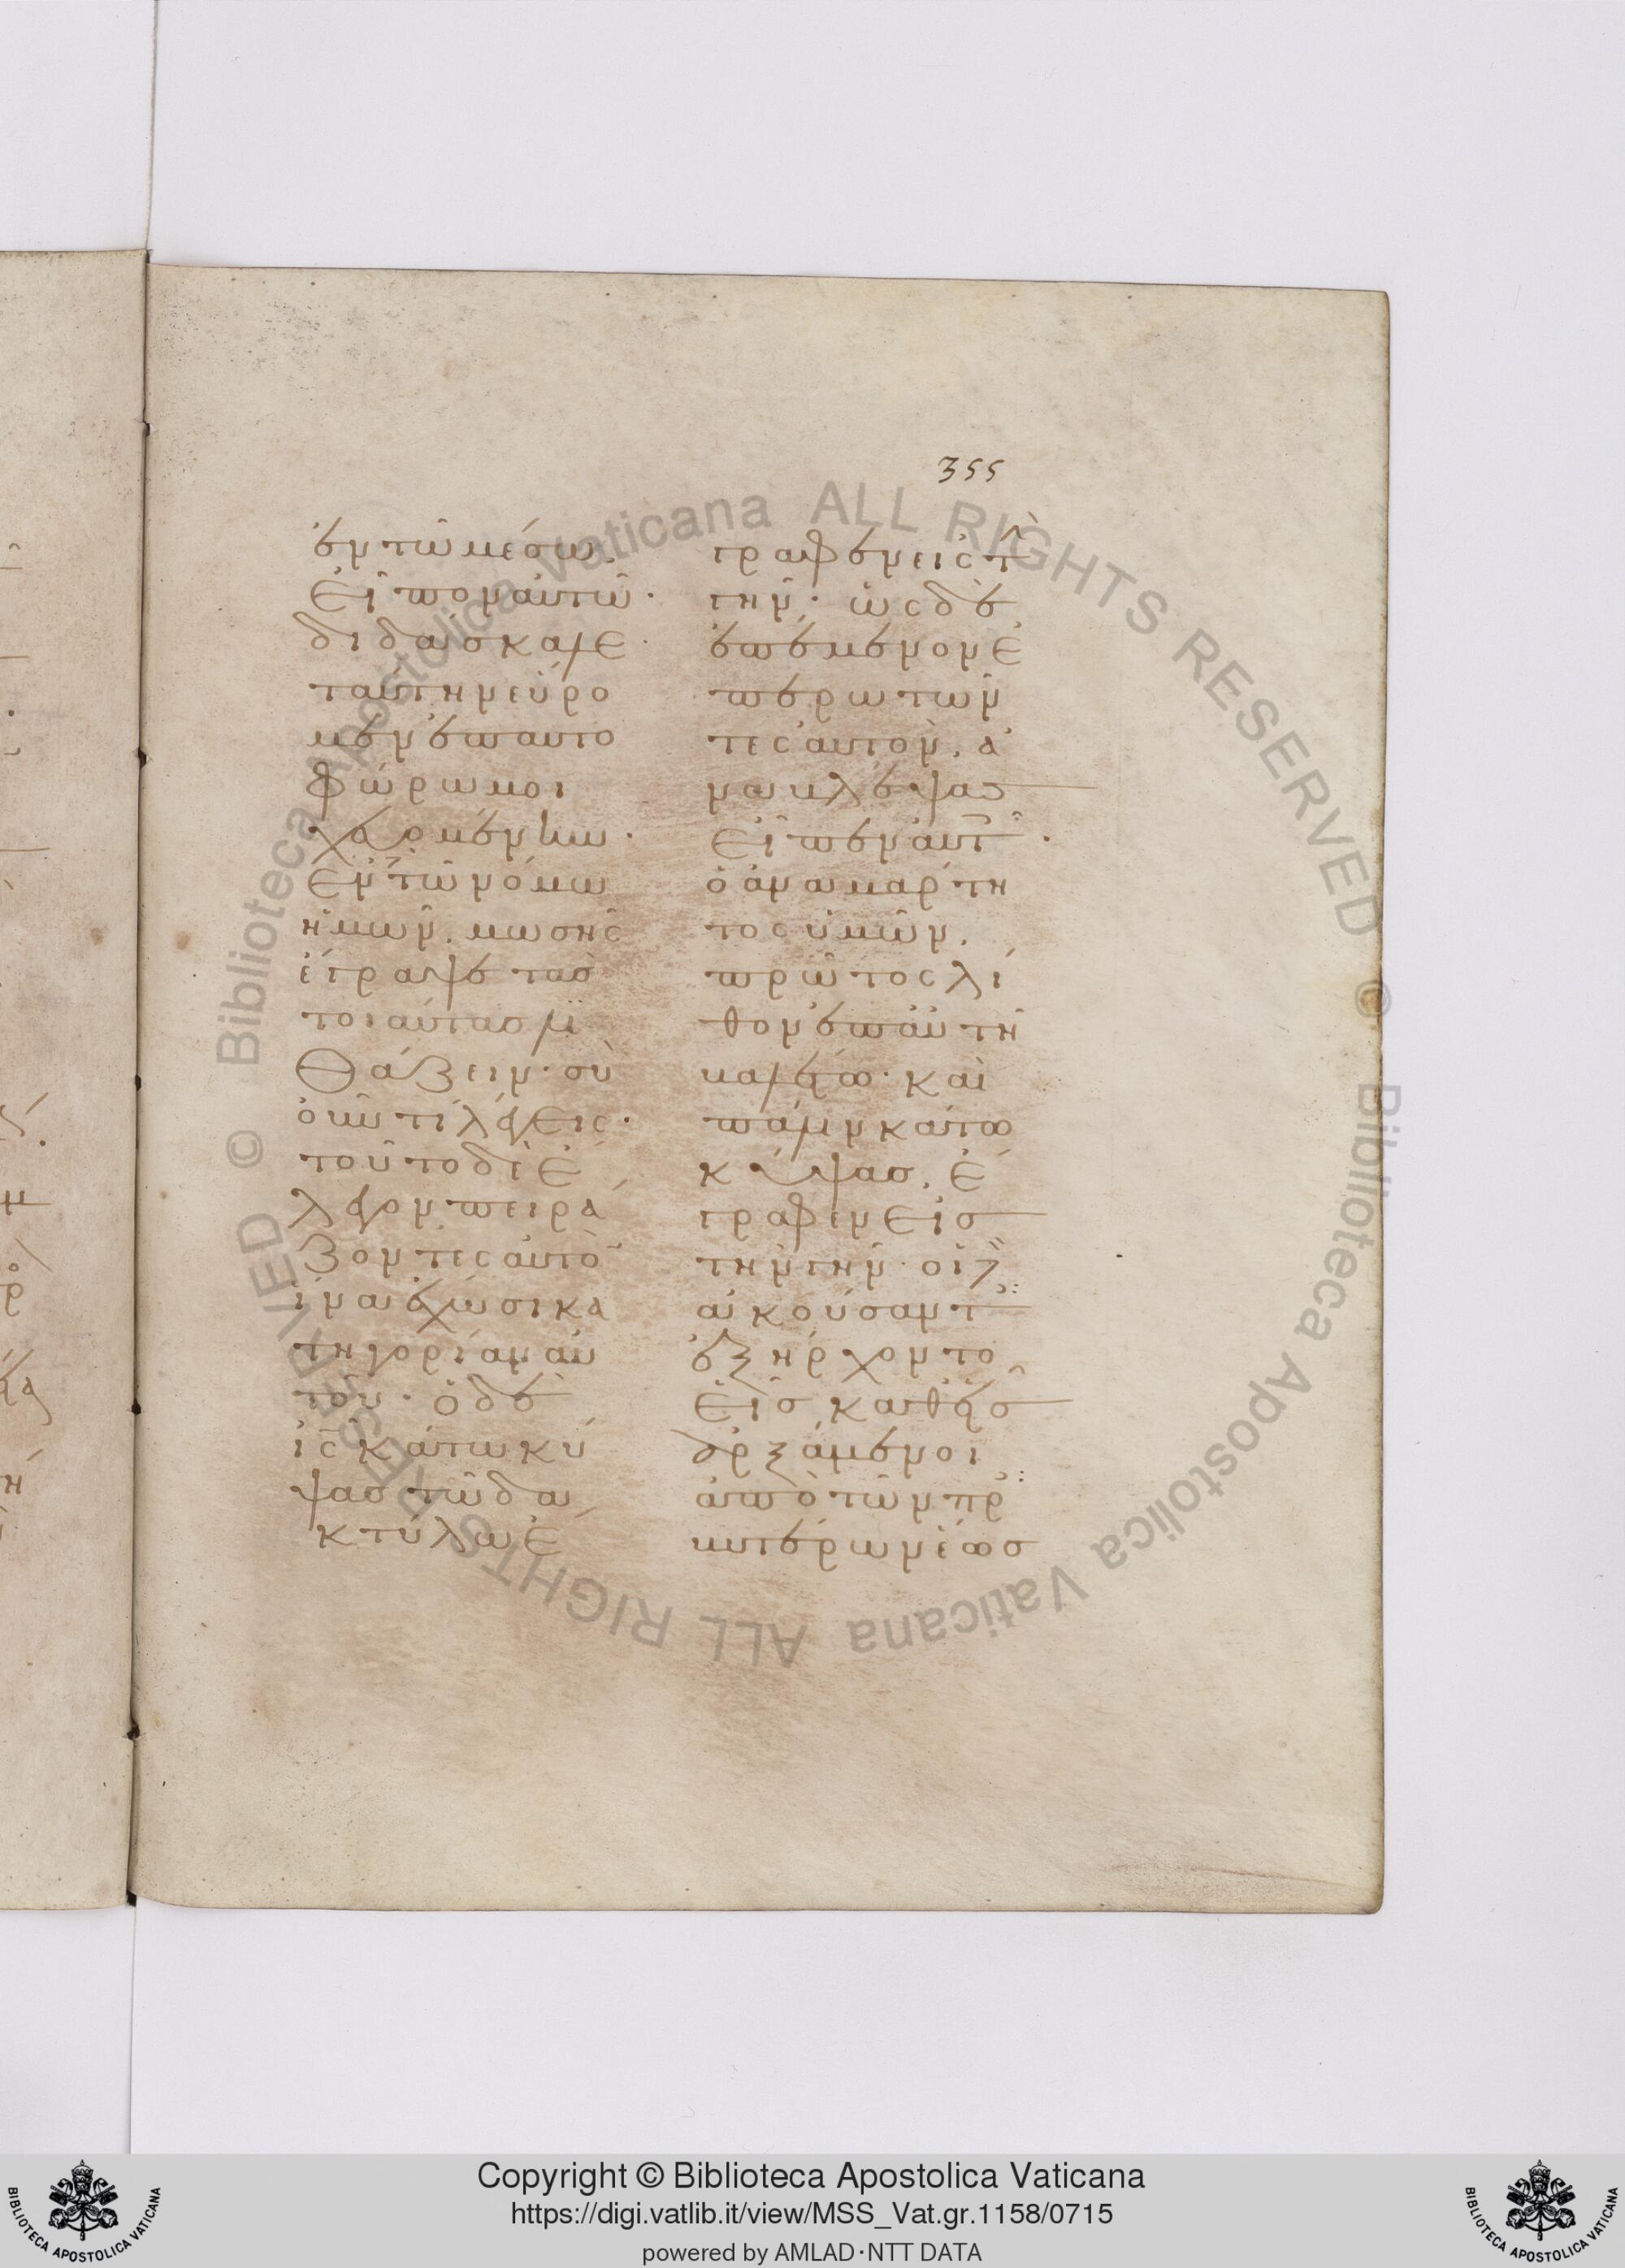 355
ἐν τῶ μέσω.
εἶπον αὐτῶ·
διδάσκαλε·
ταύτην εὕρο
μεν ἐπαυτο
φώρω μοι
χευομένην·
ἐν τῶ νόμω
ἡμῶν. μωσῆς
ἔγραψε τὰσ
τοιαύτας λι
θάζειν· σὺ
οὖν τί λέγεις·
τοῦτο δὲ ἔ
λεγον πειρά
ζοντες αὐτὸ
ἵνα ἔχωσι κα
τηγορίαν αὐ
τοῦ· ὁ δὲ
ις κάτω κύ
ψας τῶ δα
κτύλω ἔ
γραφεν εἰς τὴ
γῆν· ὡς δὲ
ἐπέμενον ἐ
περωτῶν
τες αὐτόν. ἀ
ναβλέψας
εἶπεν αὐτ·
ὁ ἀναμάρτη
τος ὑμῶν.
πρῶτος λί
θον ἐπ αὐτῆ
βαλέτω· καὶ
πάλιν κάτω
κύψας. ἔ
γραφεν εἰς
τὴν γῆν· οἱ δ
ἀκούσαντ
ἐξήρχοντο
εἷς καθεῖς
ἀρξάμενοι
ἀπὸ τῶν πρε
σβυτέρων ἕως
Copyright © Biblioteca Apostolica Vaticana
https://digi.vatlib.it/view/MSS_Vat.gr.1158/0715
powered by AMLAD·NTT DATA
BIBLIOTECA APOSTOLICA VATICANA
BIBLIOTECA APOSTOLICA VATICANA
© Biblioteca Apostolica Vaticana ALL RIGHTS RESERVED © Biblioteca Apostolica Vaticana ALL RIGHTS RESERVED